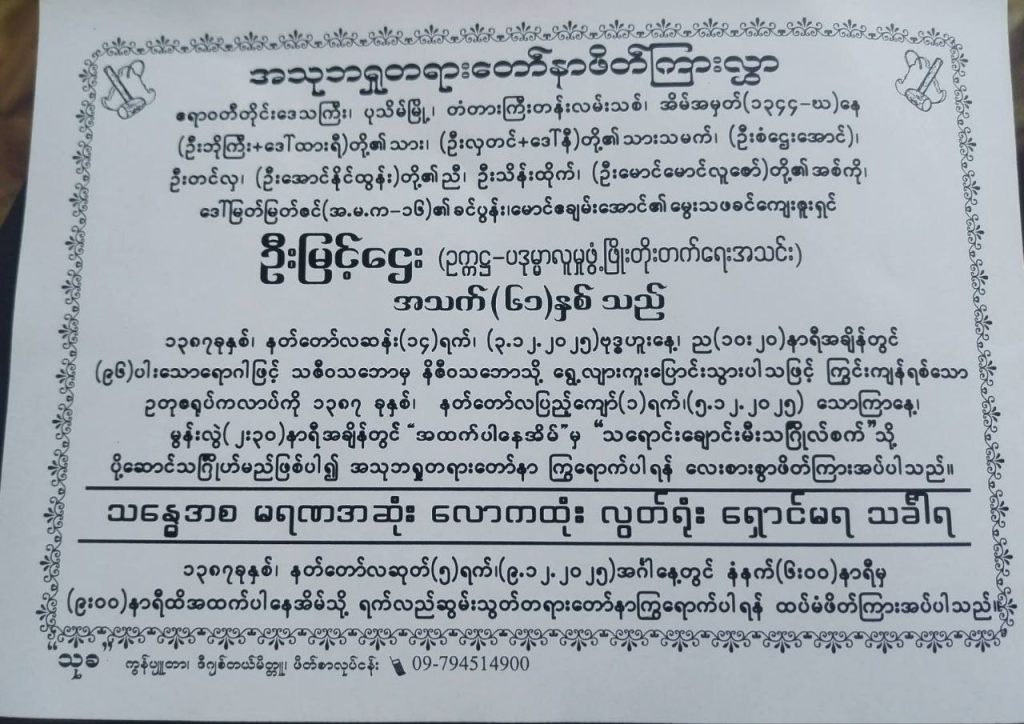 အသုဘရှုတရားတော်နာဖိတ်ကြားလွှာ
ဧရာဝတီတိုင်းဒေသကြီး၊ ပုသိမ်မြို့၊ တံတားကြီးတန်းလမ်းသစ်၊ အိမ်အမှတ်(၁၃၄၄-ဃ)နေ
(ဦးဘိုကြီး+ဒေါ်ထားရီ)တို့၏သား၊ (ဦးလှတင်+ဒေါ်နီ)တို့၏သားသမက်၊ (ဦးစံဌေးအောင်)၊
ဦးတင်လှ၊ (ဦးအောင်နိုင်ထွန်း)တို့၏ညီ၊ ဦးသိန်းထိုက်၊ (ဦးမောင်မောင်လူဇော်)တို့၏အစ်ကို၊
ဒေါ်မြတ်မြတ်ဇင်(အ.မ.က-၁၆)၏ခင်ပွန်း၊မောင်ဧချမ်းအောင်၏မွေးသဖခင်ကျေးဇူးရှင်
ဦးမြင့်ဌေး (ဥက္ကဋ္ဌ-ပဒုမ္မာလူမှုဖွံ့ဖြိုးတိုးတက်ရေးအသင်း)
အသက်(၆၁)နှစ် သည်
၁၃၈၇ခုနှစ်၊ နတ်တော်လဆန်း(၁၄)ရက်၊ (၃.၁၂.၂၀၂၅)ဗုဒ္ဓဟူးနေ့၊ ည(၁၀း၂၀)နာရီအချိန်တွင်
(၉၆)ပါးသောရောဂါဖြင့် သဇီဝသဘောမှ နိဇီဝသဘောသို့ ရွေ့လျားကူးပြောင်းသွားပါသဖြင့် ကြွင်းကျန်ရစ်သော
ဥတုဇရုပ်ကလာပ်ကို ၁၃၈၇ ခုနှစ်၊ နတ်တော်လပြည့်ကျော်(၁)ရက်၊(၅.၁၂.၂၀၂၅) သောကြာနေ့၊
မွန်းလွဲ(၂း၃၀)နာရီအချိန်တွင် “အထက်ပါနေအိမ်”မှ “သရောင်းချောင်းမီးသဂြိုလ်စက်”သို့
ပို့ဆောင်သဂြိုဟ်မည်ဖြစ်ပါ၍ အသုဘရှုတရားတော်နာ ကြွရောက်ပါရန် လေးစားစွာဖိတ်ကြားအပ်ပါသည်။
သန္ဓေအစ မရဏအဆုံး လောကထုံး လွတ်ရုံး ရှောင်မရ သင်္ခါရ
၁၃၈၇ခုနှစ်၊ နတ်တော်လဆုတ်(၅)ရက်၊(၉.၁၂.၂၀၂၅)အင်္ဂါနေ့တွင် နံနက်(၆း၀၀)နာရီမှ
(၉း၀၀)နာရီထိအထက်ပါနေအိမ်သို့ ရက်လည်ဆွမ်းသွတ်တရားတော်နာကြွရောက်ပါရန် ထပ်မံဖိတ်ကြားအပ်ပါသည်။
“သုခ” ကွန်ပျူတာ၊ ဒီဂျစ်တယ်မိတ္တူ၊ ဖိတ်စာလုပ်ငန်း 09-794514900